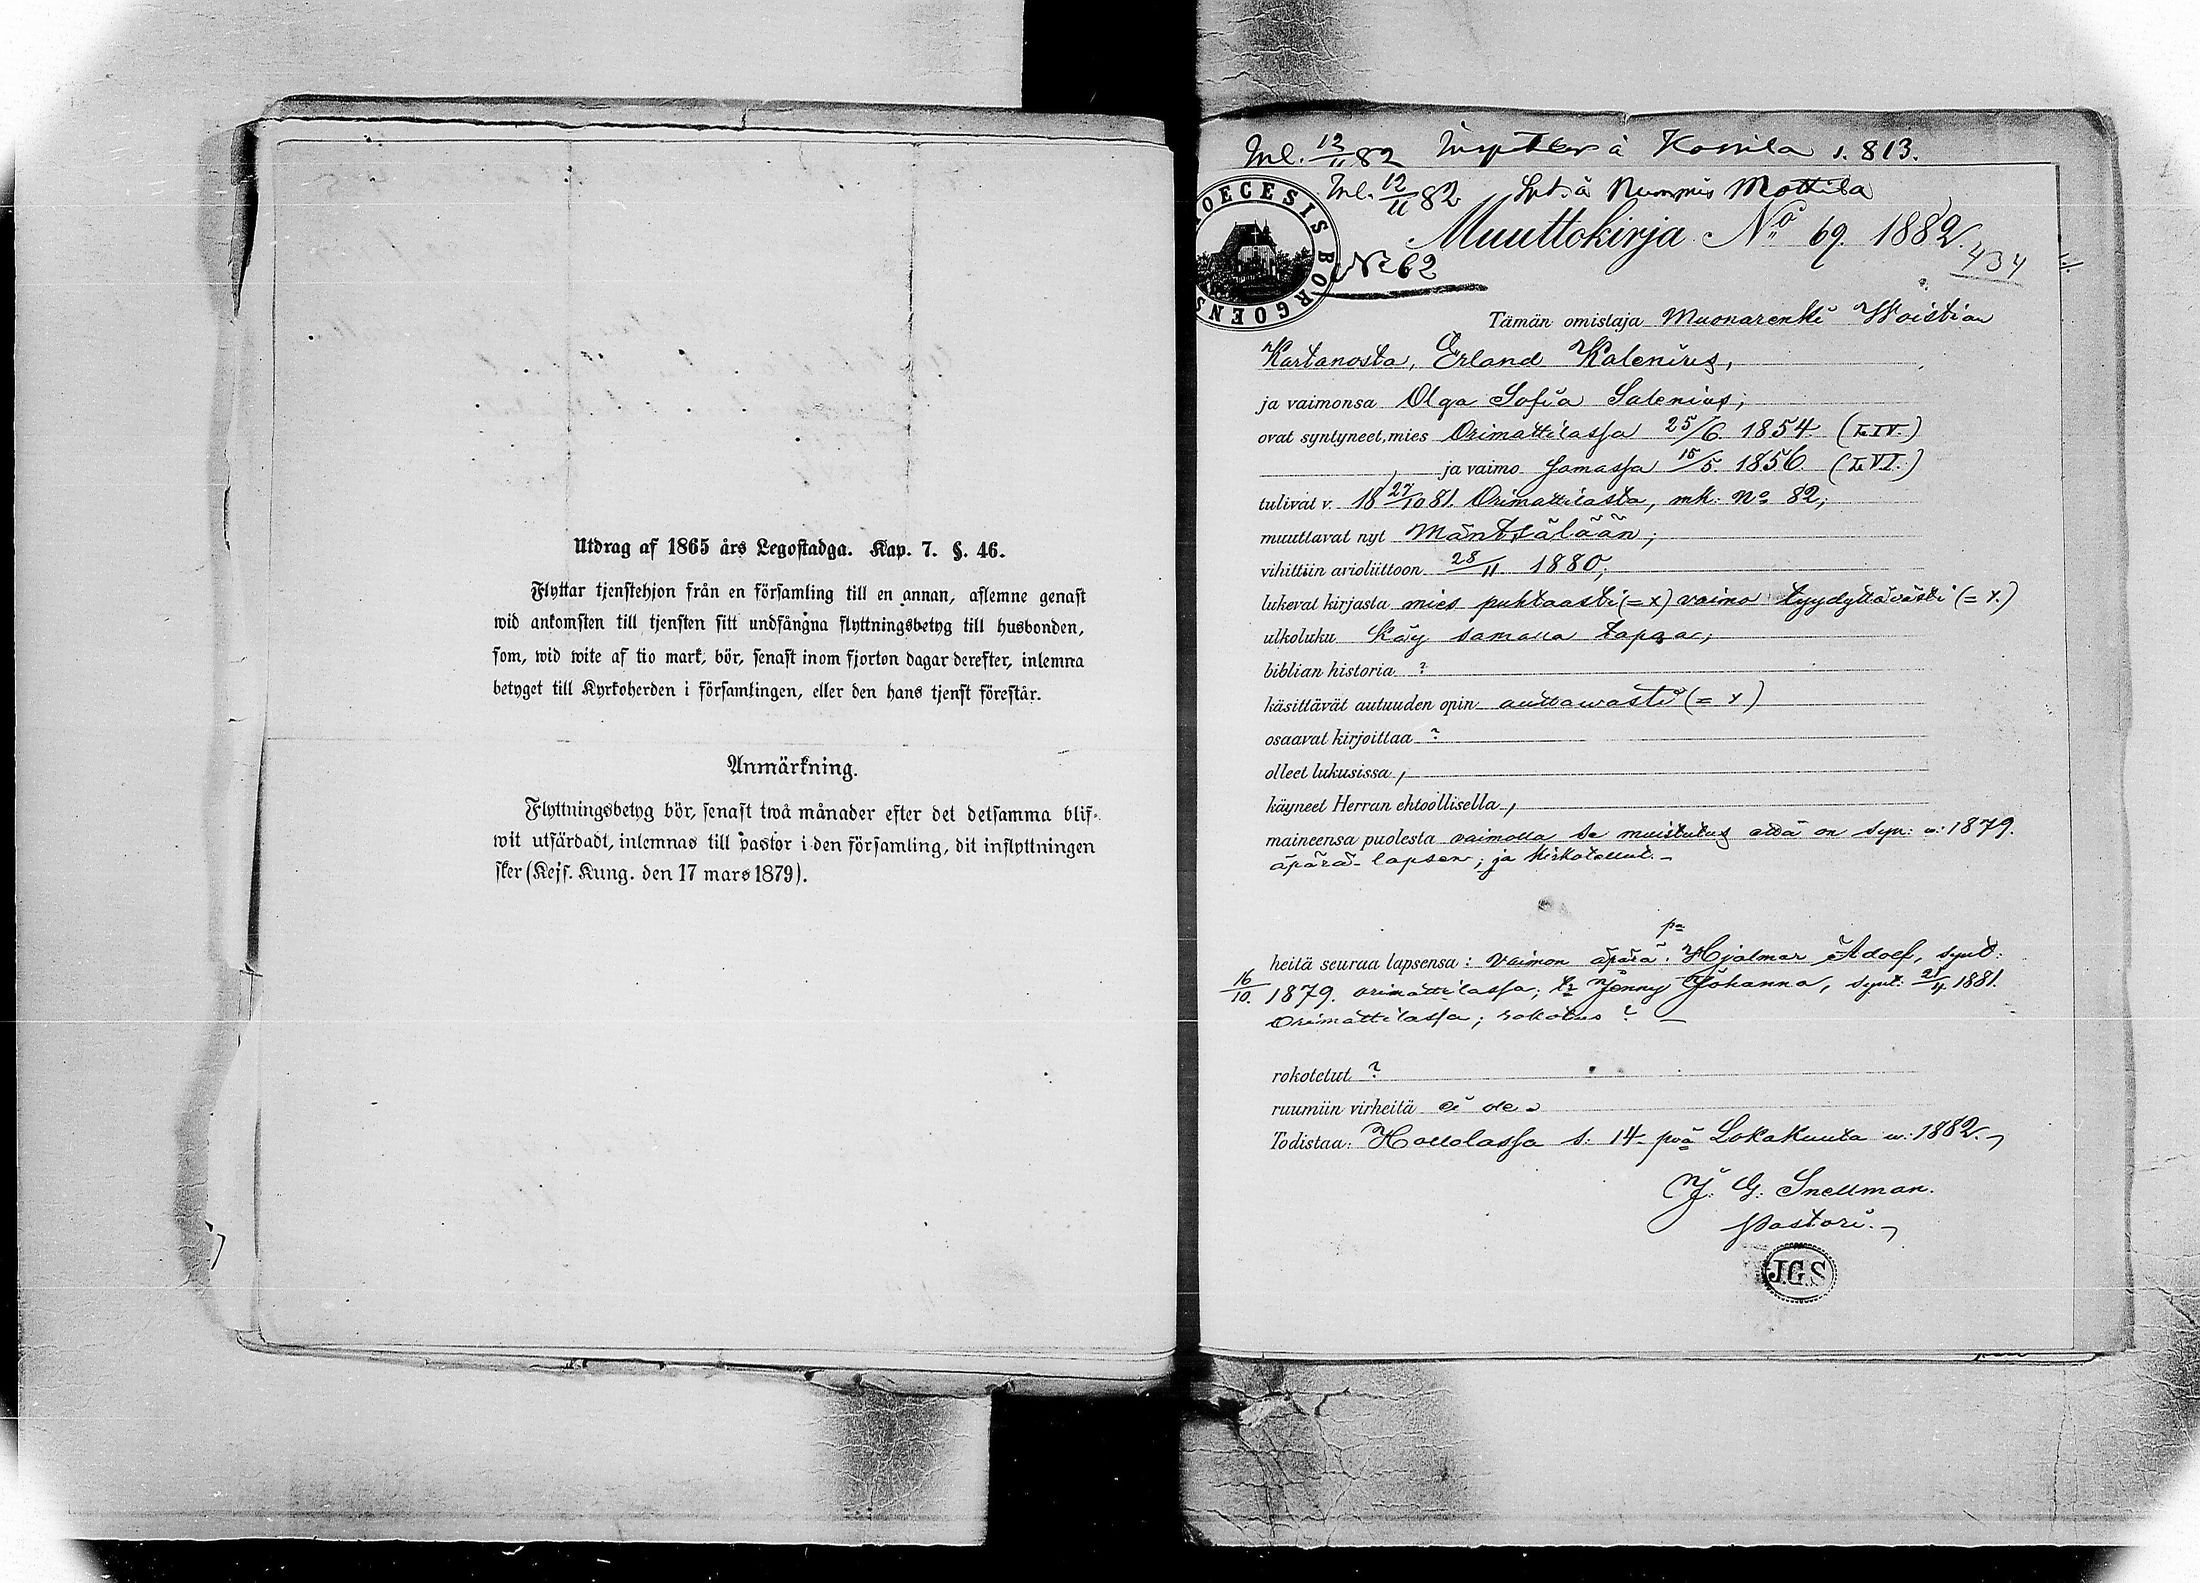 Utdrag af 1865 års Legostadga. Kap. 7. §. 46.
Flyttar tjenstehjon från en församling till en annan, aflemne genast
wid ankomsten till tjensten sitt undfångna flyttningsbetyg till husbonden,
som, wid wite af tio mark, bör, senast inom fjorton dagar derefter, inlemna
betyget till Kyrkoherden i församlingen, eller den hans tjenst förestår.
Anmärkning.
Flyttningsbetyg bör, senast twå månader efter det detsamma blif-
wit utfärdadt, inlemnas till pastor i den församling, dit inflyttningen
sker (Kejs. Kung. den 17 mars 1879).
Inl. 12/11 82 å Konila s. 813.
Inl. 12/11 82 å Nummis Mattila
DIOECESIS BORGOENS
Muuttokirja No 69. 1882.
No 62
434
Tämän omistaja Muonarenki Woistion
Kartanosta, Erland Kalenius,
ja vaimonsa Olga Sofia Salenius;
ovat syntyneet, mies Orimattilassa 25/6 1854. (LIV.)
ja vaimo samassa 15/5. 1856 (LVI.)
tulivat v. 18 27/10 81. Orimattilasta, mk. No 82;
muuttavat nyt Mäntsälään;
vihittiin avioliittoon 28/11 1880;
lukevat kirjasta mies puhtaasti (=x) vaimo tyydyttävästi (=x.)
ulkoluku käy samalla tapaa;
biblian historia ?
käsittävät autuuden opin auttawasti (= x)
osaavat kirjoittaa ?
olleet lukusissa,
käyneet Herran ehtoollisella,
maineensa puolesta vaimolla se muistutus että on syn: w: 1879.
äpärä-lapsen; ja kirkotellut.-
heitä seuraa lapsensa: vaimon äpärä: pa Hjalmar Adolf, synt:
16/10. 1879. Orimattilassa; tr Jenny Johanna, synt: 21/4. 1881.
Orimattilassa; rokotus ? -
rokotetut ?
ruumiin virheitä ei ole.
Todistaa: Hollolassa s: 14 pnä Lokakuuta w: 1882.
J. G. Snellman.
Pastori.
J.G.S